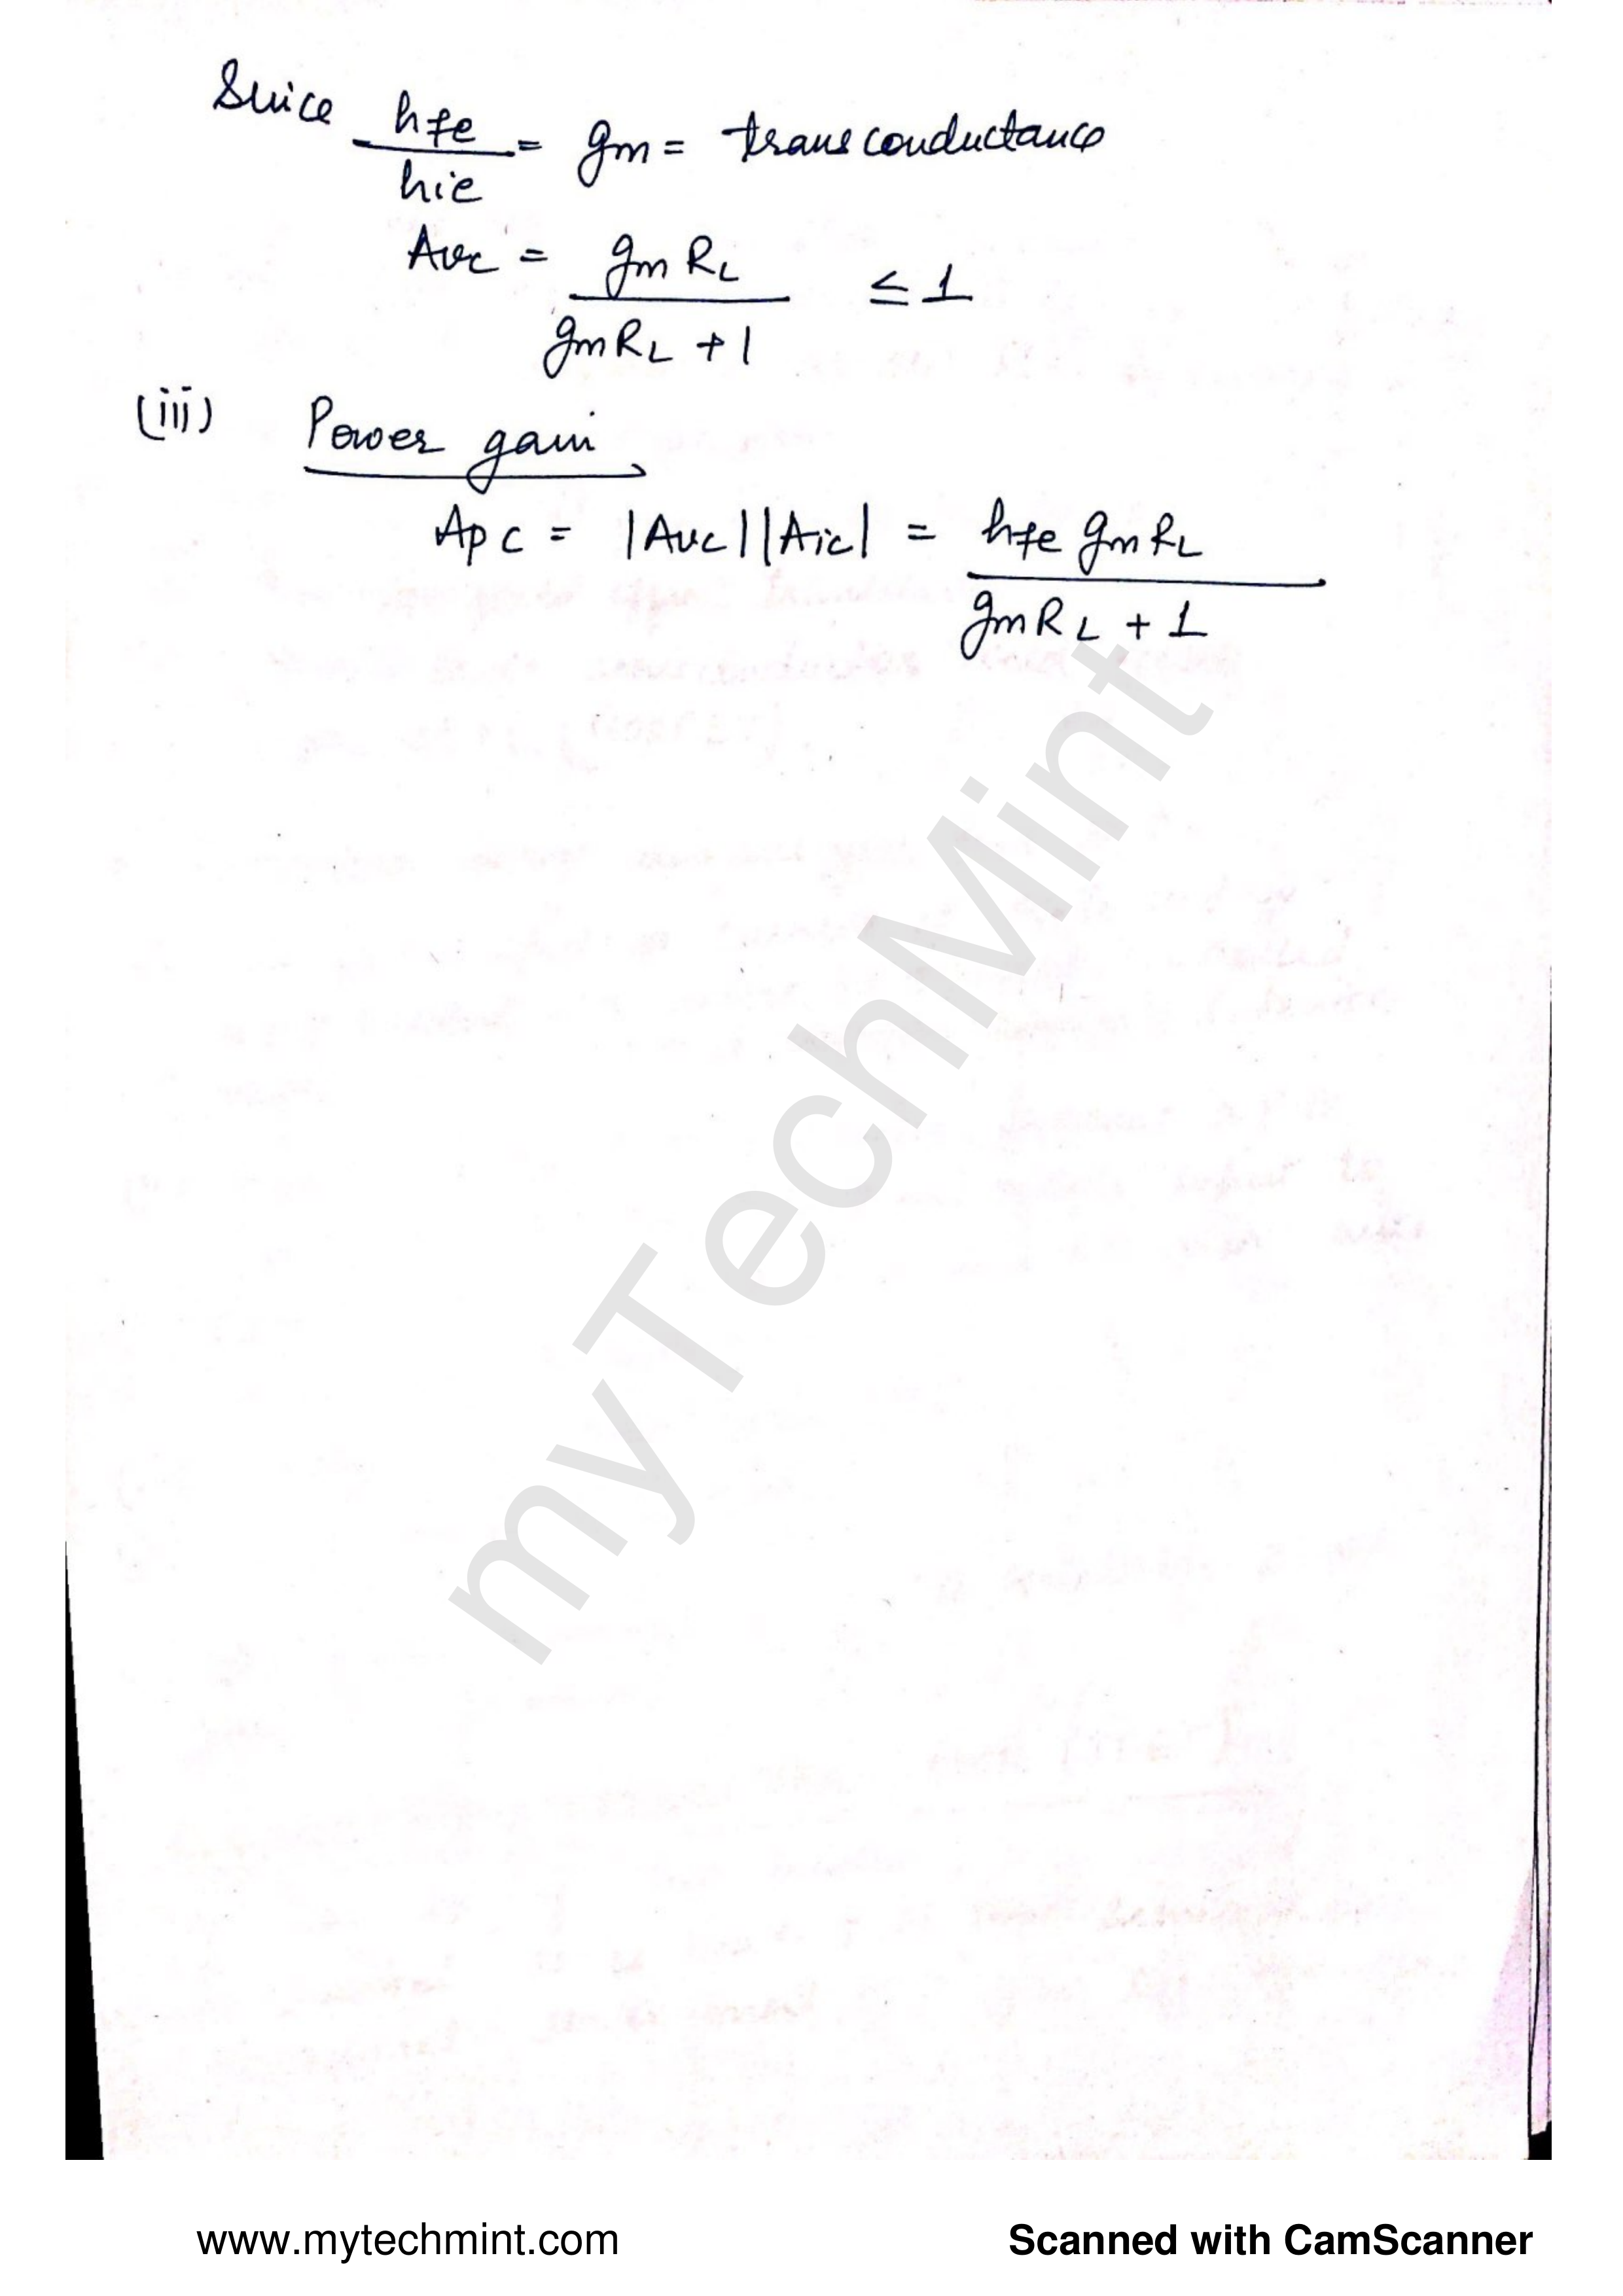 Since hfe/hie = gm = transconductance
Avc = gm RL / gm RL + 1 ≤ 1
(iii) Power gain
Apc = |Avc| |Aic| = hfe gm RL / gm RL + 1
myTechMint
www.mytechmint.com
Scanned with CamScanner